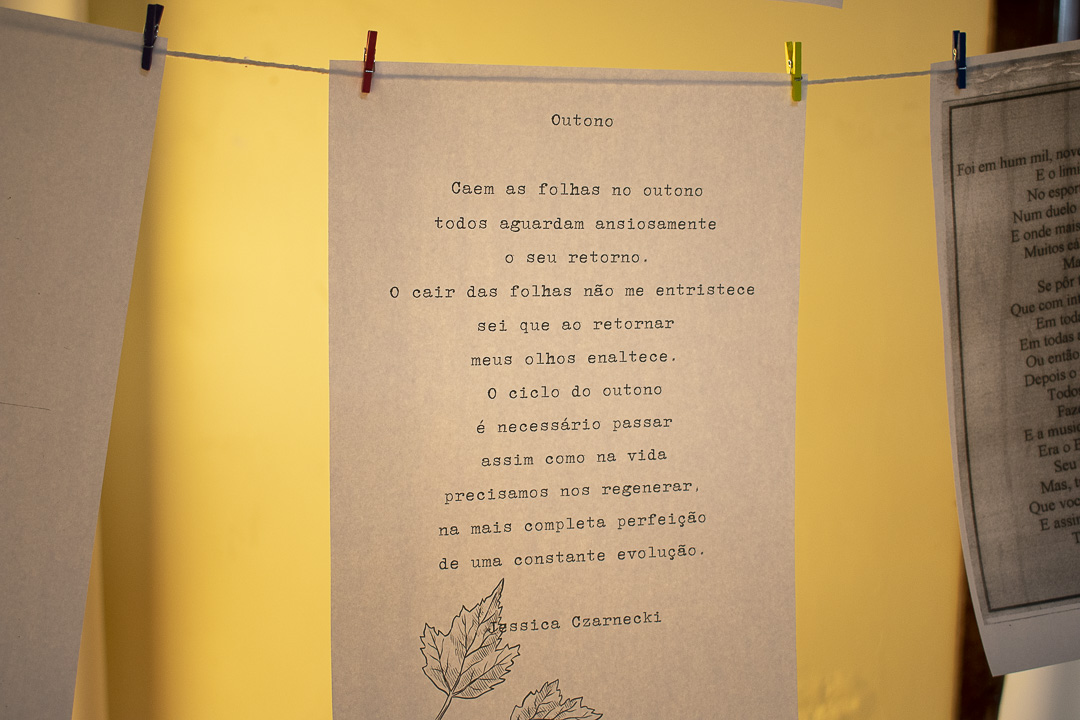 Outono
Caem as folhas no outono
todos aguardam ansiosamente
o seu retorno.
O cair das folhas não me entristece
sei que ao retornar
meus olhos enaltece.
O ciclo do outono
é necessário passar
assim como na vida
precisamos nos regenerar,
na mais completa perfeição
de uma constante evolução.
Jessica Czarnecki
Foi em hum mil,
E o
No
Num duelo
E onde mais
Muitos
Se pôr
Que com
Em
Em todas
Ou então
Depois o
E a
Era o
Seu
Mas,
Que
E